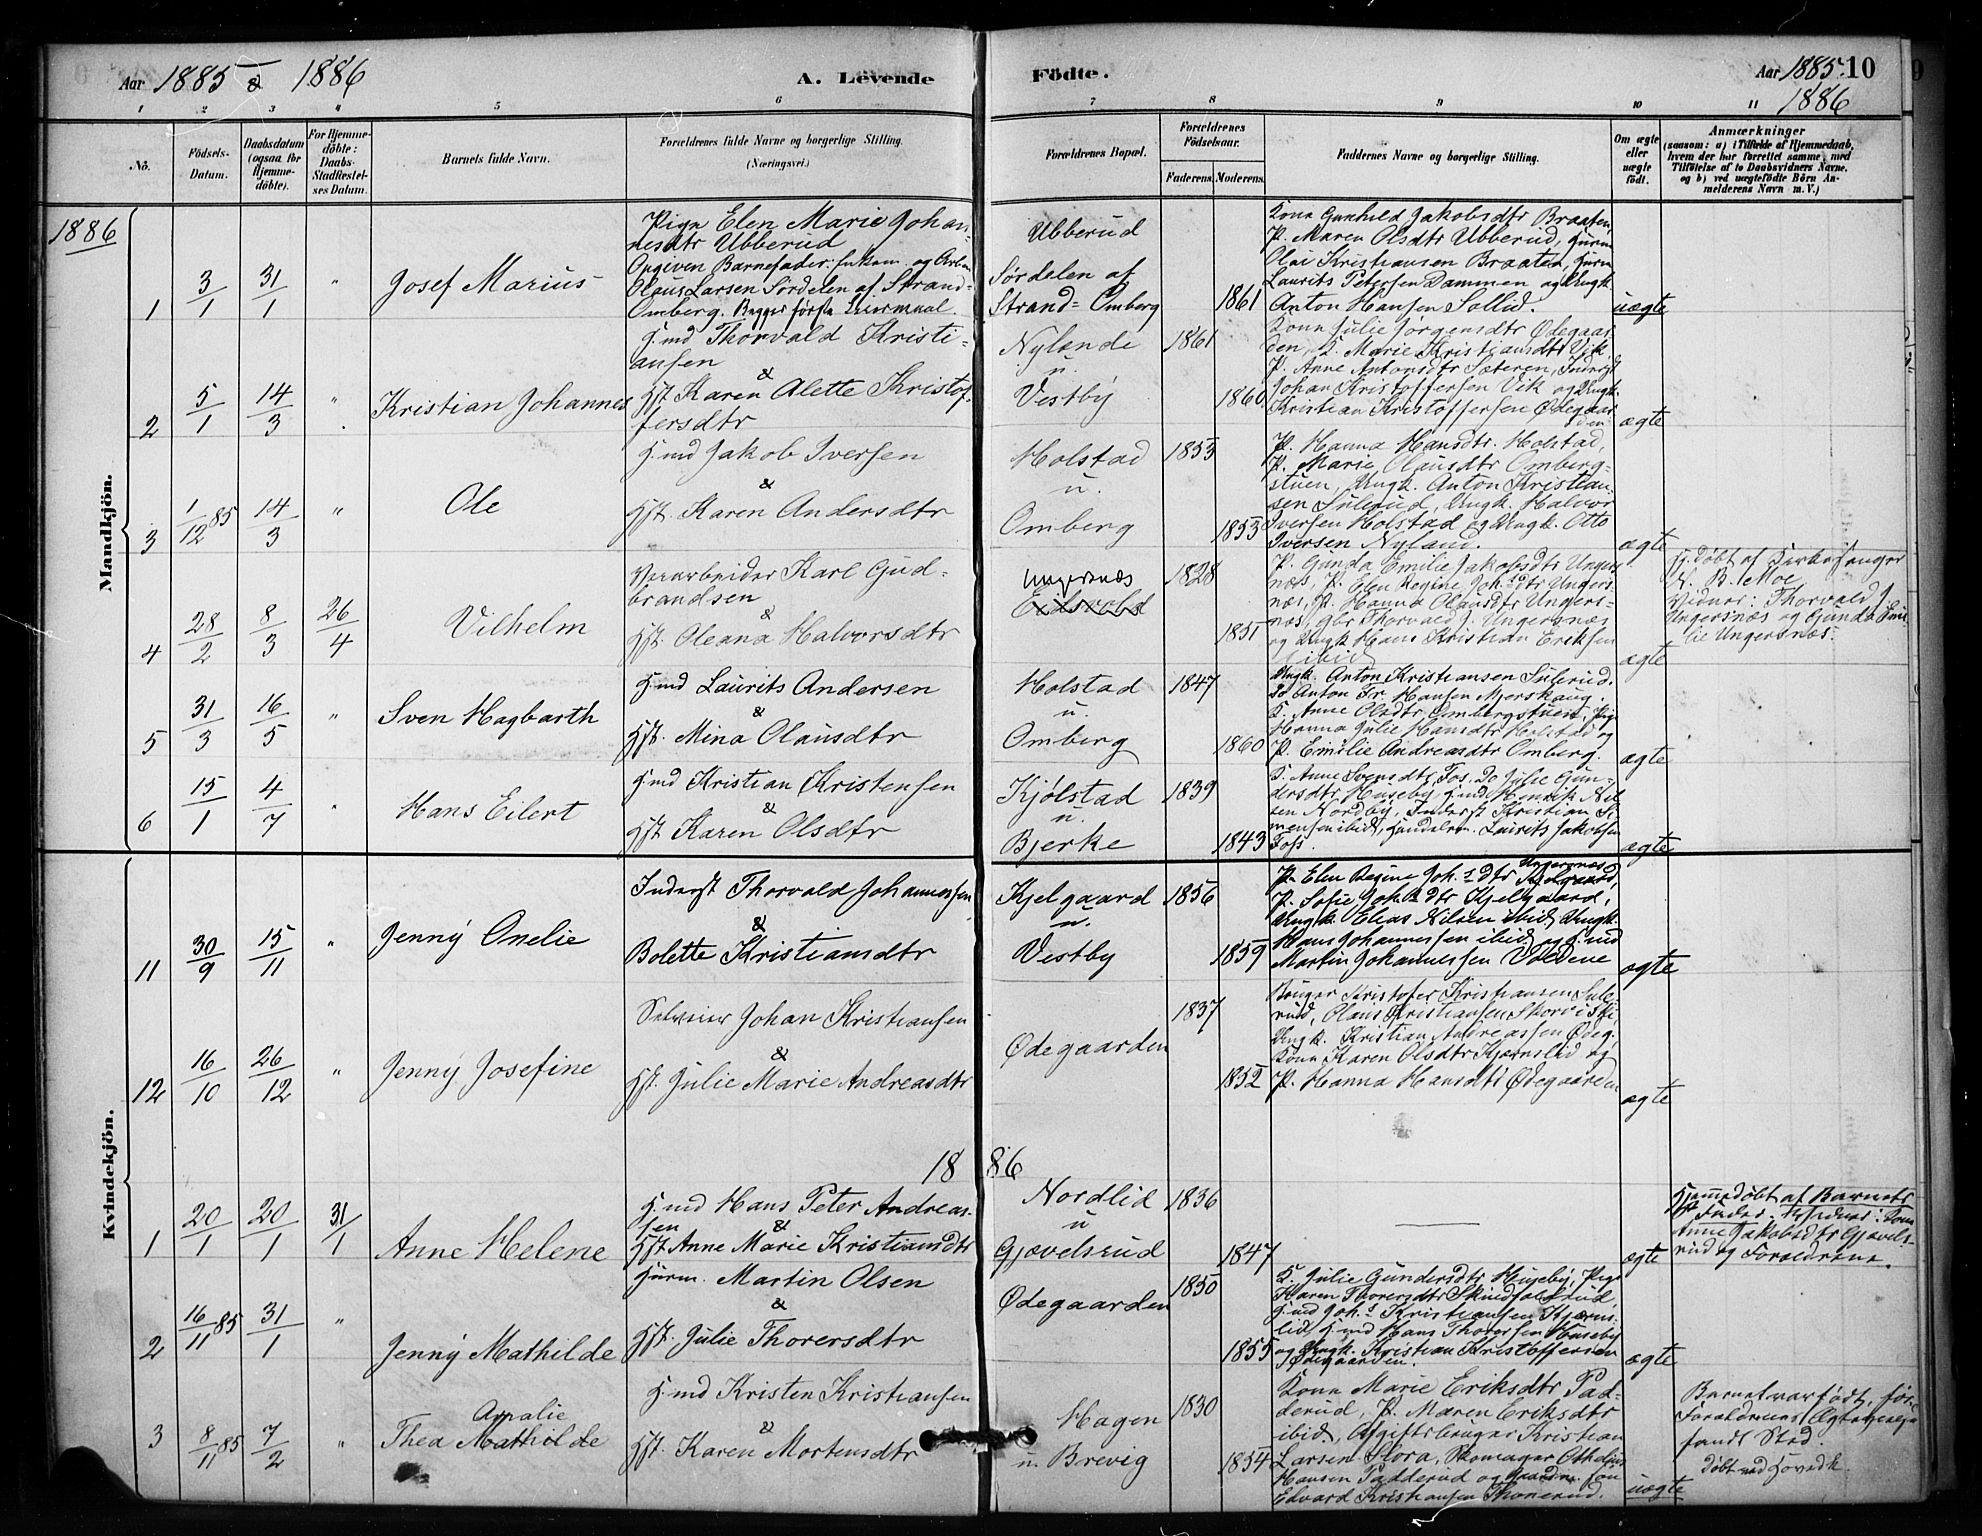 Aar 1885 & 1886
A. Levende
Födte.
Aar 1885. 10
1886
1 2 3 4 5 6 7 8 9 10 11
No.
Födsels-Datum.
Daabsdatum (ogsaa for Hjemmedöbte).
For Hjemmedöbte: Daabs-Stadfæstelses Datum.
Barnets fulde Navn.
Forældrenes fulde Navne og borgerlige Stilling.
(Næringsvei.)
Forældrenes Bopæl.
Forældrenes Födselsaar.
Faderens. Moderens.
Faddernes Navne og borgerlige Stilling.
Om ægte eller uægte født.
Anmærkninger
(saasom: a) i Tilfælde af Hjemmedaab, hvem der har forrettet samme, med Tilföielse af to Daabsvidners Navne, og b) ved uægtefödte Börn Anmelderens Navn m. V.)
1886
Mandkjön.
1 3/1 31/1 " Josef Marius
Pige Elen Marie Johan-
nesdtr Ubberud
Opgiven Barnefader: Enkem. og Arb.
Olaus Larsen Sørdelen af Strand-
Omberg. Begges første Leiermaal.
Ubberud
Sørdelen af
Strand=Omberg
1861
Kone Gunhild Jakobsdtr Braaten,
P. Maren Olsdtr Ubberud, Gurm
Olai Kristiansen Braaten, Gurm
Laurits Petersen Dammen og Ungk
Anton Hansen Sollid.
uægte
2 5/1 14/3 " Kristian Johannes
Gmd Thorvald Kristi-
ansen
&
Hst Karen Alette Kristof-
fersdtr
Nylende
u.
Vestby
1861
1860
Kone Julie Jørgensdtr Ødegaar-
den, K. Marie Kristiansdtr Vik
P. Anne Antonsdtr Sæteren, Inderst
Johan Kristoffersen Vik og Ungk.
Kristian Kristoffersen Ødegaar-
den
ægte
3 1/12 85 14/3 " Ole
Gmd Jakob Iversen
&
Hst. Karen Andersdtr
Holstad
u.
Omberg
1853
1853
P. Hanna Hansdtr. Holstad,
P. Marie Olausdtr Omberg-
stuen, Ungk. Anton Kristian-
sen Sulerud, Ungk. Halvor
Iversen Holstad og Ungk. Otto
Iversen Nyland.
ægte
4 28/2 8/3 26/4 Vilhelm
Karl Gud-
brandsen
&
Hst. Oleana Halvorsdtr
Ungersnæs
Eidsvold
1828
1851
P. Gunda Emilie Jakobsdtr Ungers-
næs, P. Elen Regine Johsdtr Ungers-
næs, P. Hanna Olausdtr Ungers-
næs, Gbr Thorvald J. Ungersnæs
og Ungk Hans Kristian Eriksen
ibid
ægte
Hj. døbt af Kirkesanger
B. Moe
Vidner: Thorvald J.
Ungersnæs og Gunda Emi-
lie Ungersnæs.
5 31/3 16/5 " Sven Hagbarth
Gmd Laurits Andersen
&
Hst. Mina Olausdtr
Holstad
u.
Omberg
1847
1860
Ungk. Anton Kristiansen Sulerud.
Do Anton Fr. Hansen Mjerskaug.
K. Anne Olsdtr Ombergstuen, Pige
Hanna Julie Hansdtr Holstad og
P. Emilie Andreasdtr Omberg.
ægte
6 15/1 4/7 " Hans Eilert
Gmd Kristian Kristensen
&
Hst Karen Olsdtr
Kjølstad
u.
Bjerke
1839
1843
K. Anne Svensdtr Fos. Do Julie Gun-
dersdtr Huseby, Gmd Henrik Nil-
sen Nordby, Inderst Kristian Si-
mensen ibid, Handelsm. Laurits Jakobsen
Foss.
ægte
Kvindekjön.
11 30/9 15/11 " Jenny Onelie
Inderst Thorvald Johannessen
&
Bolette Kristiansdtr
Kjelgaard
u.
Vestby
1856
1859
P. Elen Regine Johsdtr Ungersnæs,
P. Sofie Johsdtr Kjelgaard,
Ungk. Elias Nilsen ibid, Ungk.
Hans Johannessen ibid og Gmd
Martin Johannessen Valdene
ægte
12 16/10 26/12 " Jenny Josefine
Selveier Johan Kristiansen
&
Hst. Julie Marie Andreasdtr
Ødegaarden
1837
1852
Bruger Kristofer Kristiansen Sule-
rud, Olaus Kristiansen Skorvi Ski,
Ungk. Kristian Andreassen Ødeg.
Kone Karen Olsdtr Kjernslid og
P. Hanna Hansdtr Ødegaarden
ægte
1886
1 20/1 20/1 31/1 Anne Helene
Gmd Hans Peter Andreas-
sen &
Hst Anne Marie Kristiansdtr
Nordlid
u
Gjævelsrud
1836
1847
ægte
Hjemmedøbt af Barnets
Fader. Vidner: Kone
Anne Jakobsdtr Gjævels-
rud og Forældrene.
2 16/11 85 31/1 " Jenny Mathilde
Gurm. Martin Olsen
&
Hst. Julie Thorersdtr
Ødegaarden
1850
1855
K. Julie Gundersdtr Huseby, Pige
Karen Thorersdtr
Gmd Johs Kristiansen Kjærns-
lid, Gmd Hans Thorersen Huseby
og Ungk. Kristian Kristoffersen
Ødegaarden.
ægte
3 8/11 85 7/2 " Thea Amalie Mathilde
Gmd Kristen Kristiansen
&
Hst. Karen Mortensdtr
Hagen
u. Brevig
1830
1854
Kone Marie Eriksdtr Pad-
derud, P. Maren Eriksdtr
ibid, Afgiftsbruger Kristian
Larsen Flora, Skomager
Hansen Padderud og
Edvard Kristiansen Thonerud.
uægte
Barnet var født, før
Forældrenes Ægtevielse
fandt Sted.
Døbt ved Hovedk.